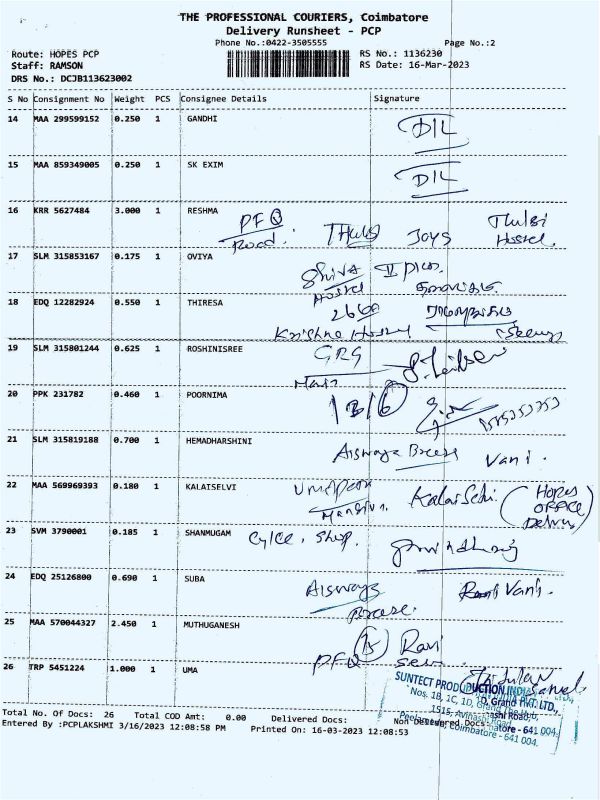 THE PROFESSIONAL COURIERS, Coimbatore
Delivery Runsheet - PCP
Phone No.:0422-3505555 Page No.:2
Route: HOPES PCP RS No.: 1136230
Staff: RAMSON RS Date: 16-Mar-2023
DRS No.: DCJB113623002
S No Consignment No Weight PCS Consignee Details Signature
14 MAA 299599152 0.250 1 GANDHI
DIL
15 MAA 859349005 0.250 1 SK EXIM
DIL
16 KRR 5627484 3.000 1 RESHMA
PFQ Road. Thulsi Joys Thulsi Hostel.
17 SLM 315853167 0.175 1 OVIYA
Shiva Hostel
18 EDQ 12282924 0.550 1 THIRESA
2660
Krishna
19 SLM 315801244 0.625 1 ROSHINISREE
GRG Main
20 PPK 231782 0.460 1 POORNIMA
1B16
21 SLM 315819188 0.700 1 HEMADHARSHINI
Vani.
22 MAA 569969393 0.180 1 KALAISELVI
Kalai Selvi (HOPES OFFICE Delivery)
23 SVM 3790001 0.185 1 SHANMUGAM
Cylce. Shop.
24 EDQ 25126800 0.690 1 SUBA
Vani.
25 MAA 570044327 2.450 1 MUTHUGANESH
15 Ravi
26 TRP 5451224 1.000 1 UMA
PFQ
SUNTECH PRODUCTION INDIA PVT. LTD.,
Nos. 1B, 1C, 1D, Grand
1515, Avinashi Road,
Coimbatore - 641 004.
Total No. Of Docs: 26 Total COD Amt: 0.00 Delivered Docs: Non Delivered Docs:
Entered By :PCPLAKSHMI 3/16/2023 12:08:58 PM Printed On: 16-03-2023 12:08:53